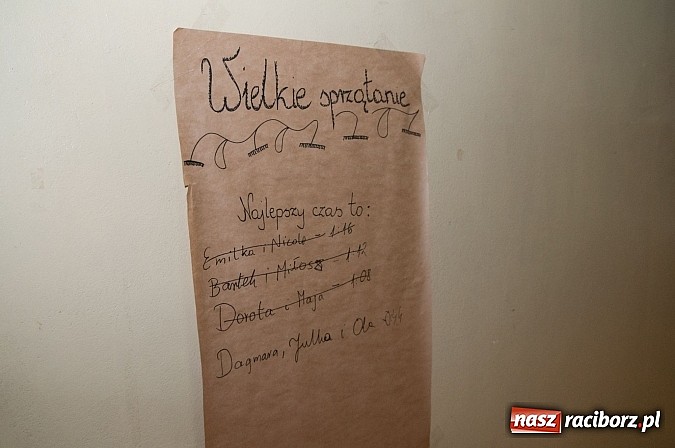 Wielkie sprzątanie
Najlepszy czas to:
Emilka i Nicole - 1:16
Bartek i Miłosz - 1:12
Dorota i Maja - 1:08
Dagmara, Julka i Ola
nasz raciborz.pl